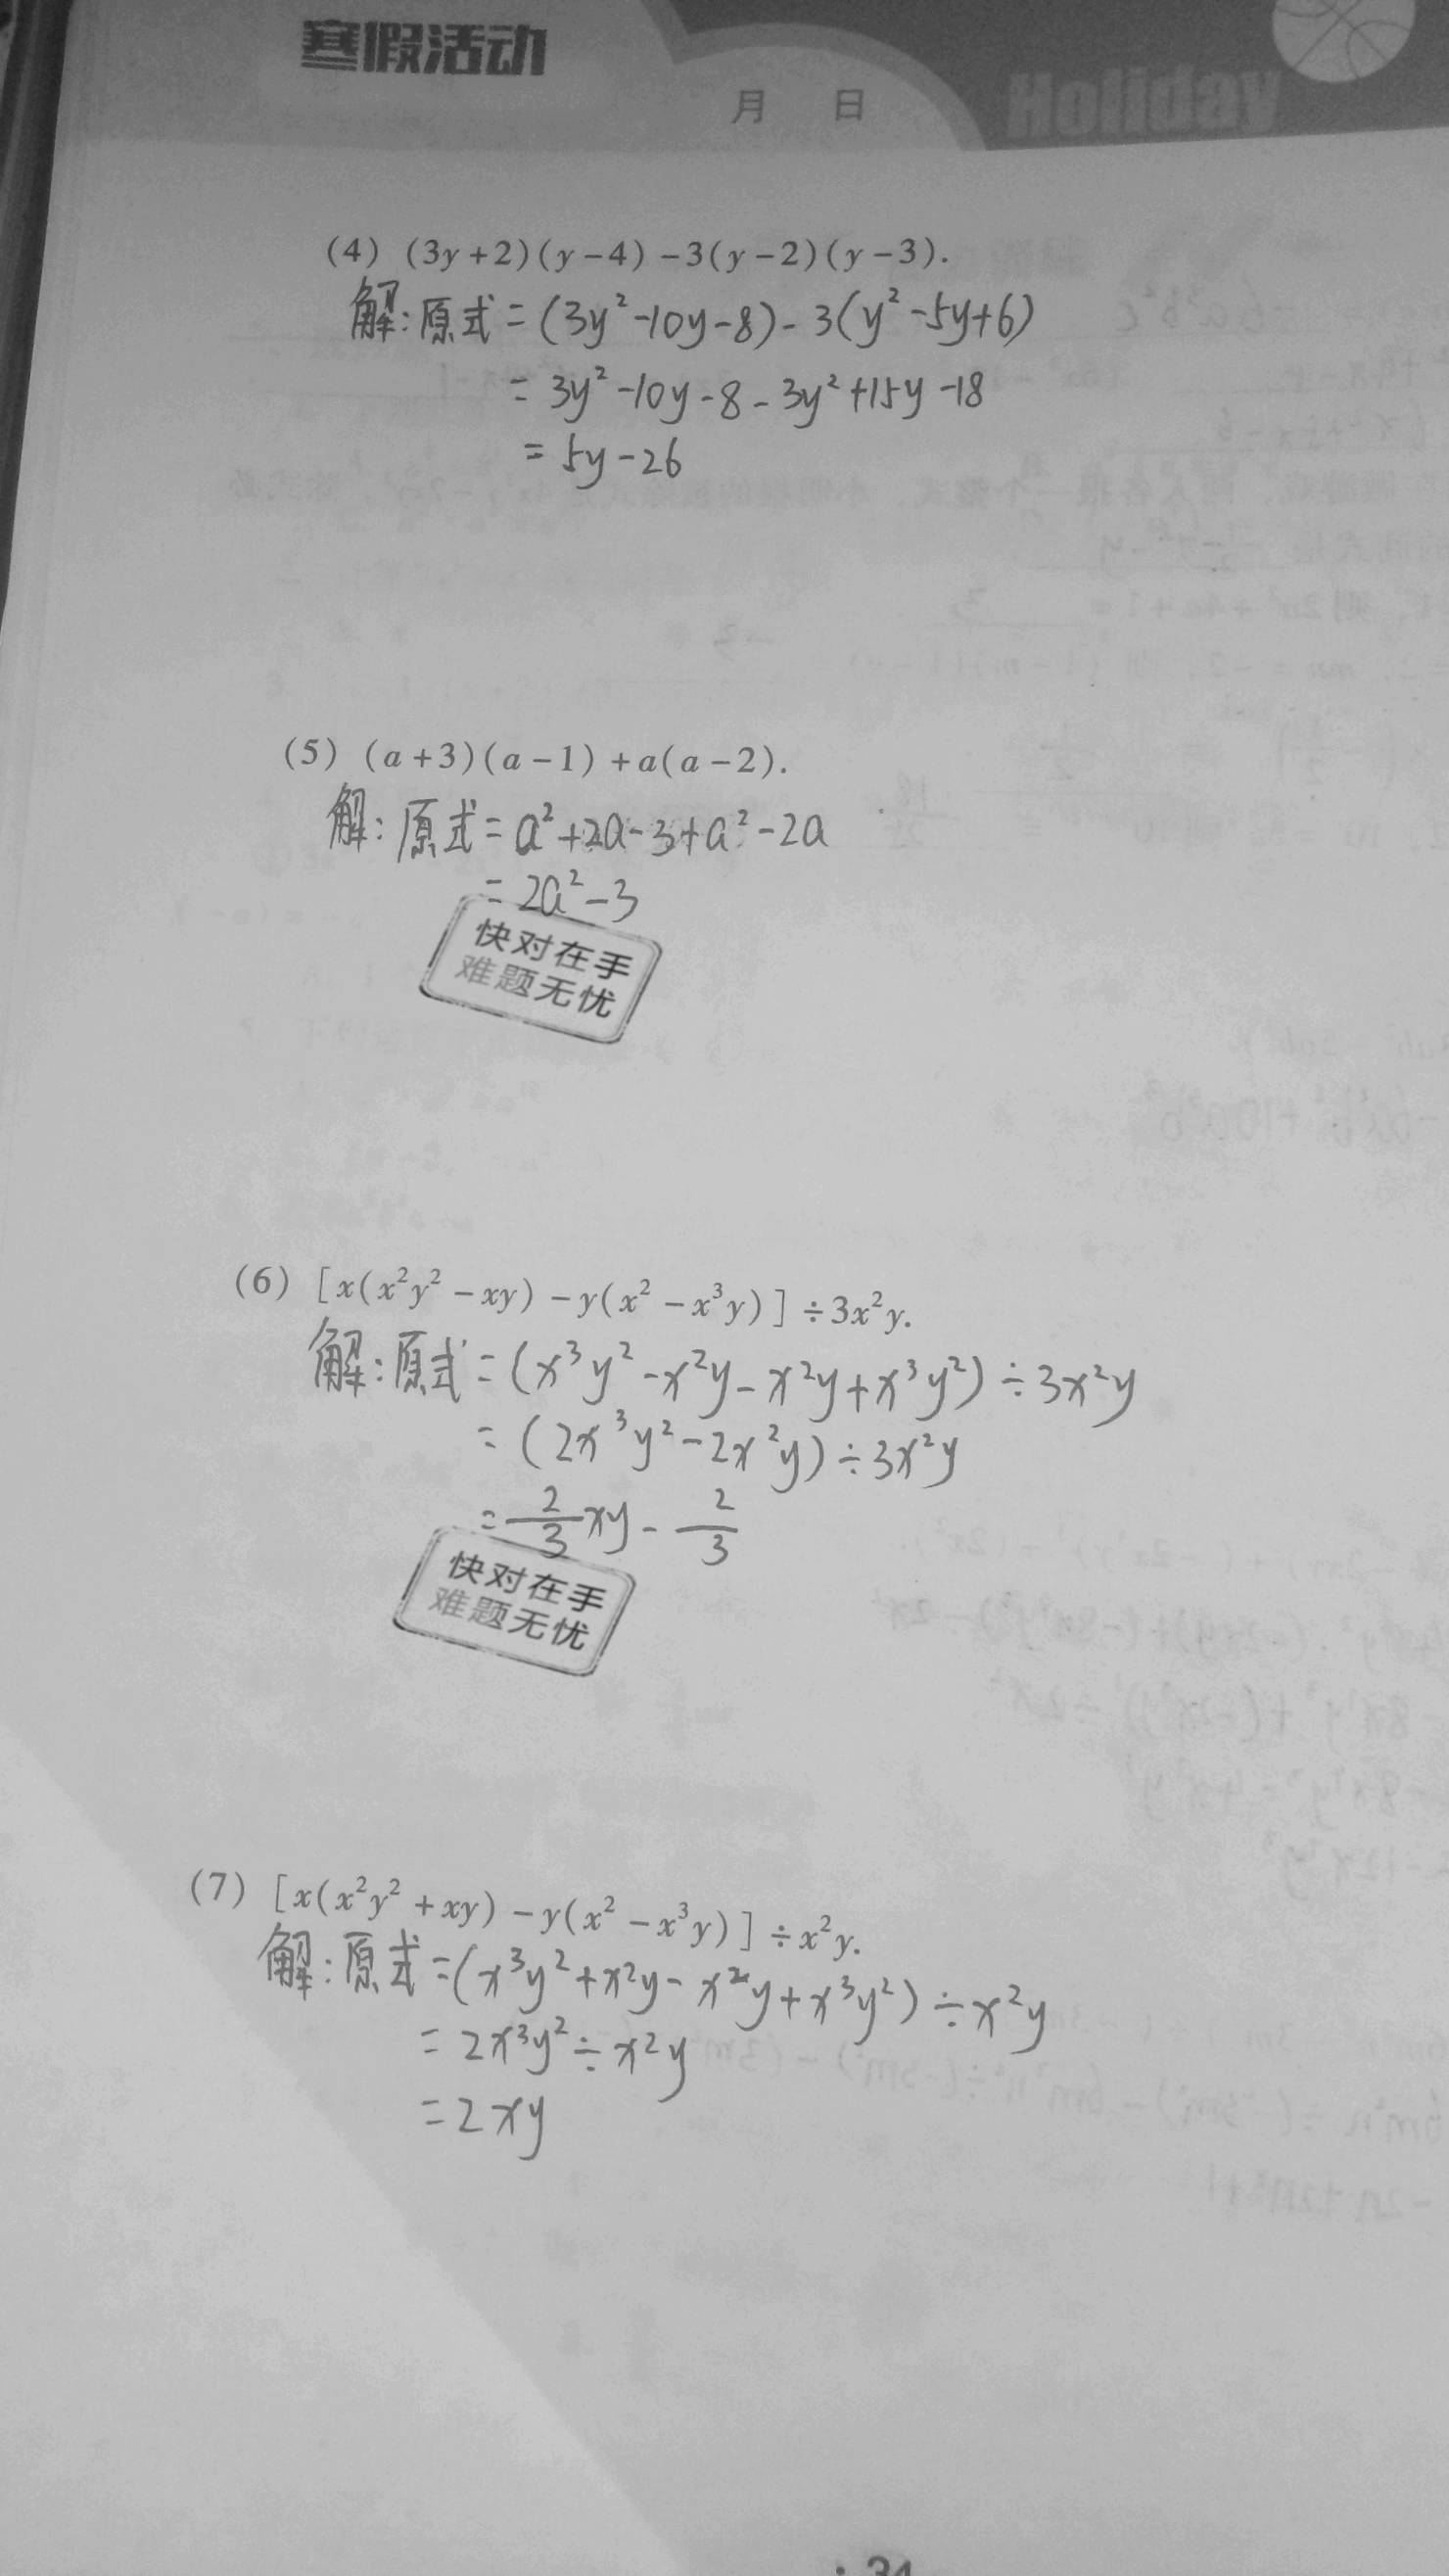 寒假活动
月 日
Holiday
(4) (3y+2)(y-4)-3(y-2)(y-3).
解:原式=(3y²-10y-8)-3(y²-5y+6)
=3y²-10y-8-3y²+15y-18
=5y-26
(5) (a+3)(a-1)+a(a-2).
解:原式=a²+2a-3+a²-2a
=2a²-3
快对在手
难题无忧
(6) [x(x²y²-xy)-y(x²-x³y)]÷3x²y.
解:原式=(x³y²-x²y-x²y+x³y²)÷3x²y
=(2x³y²-2x²y)÷3x²y
=2/3xy-2/3
快对在手
难题无忧
(7) [x(x²y²+xy)-y(x²-x³y)]÷x²y.
解:原式=(x³y²+x²y-x²y+x³y²)÷x²y
=2x³y²÷x²y
=2xy